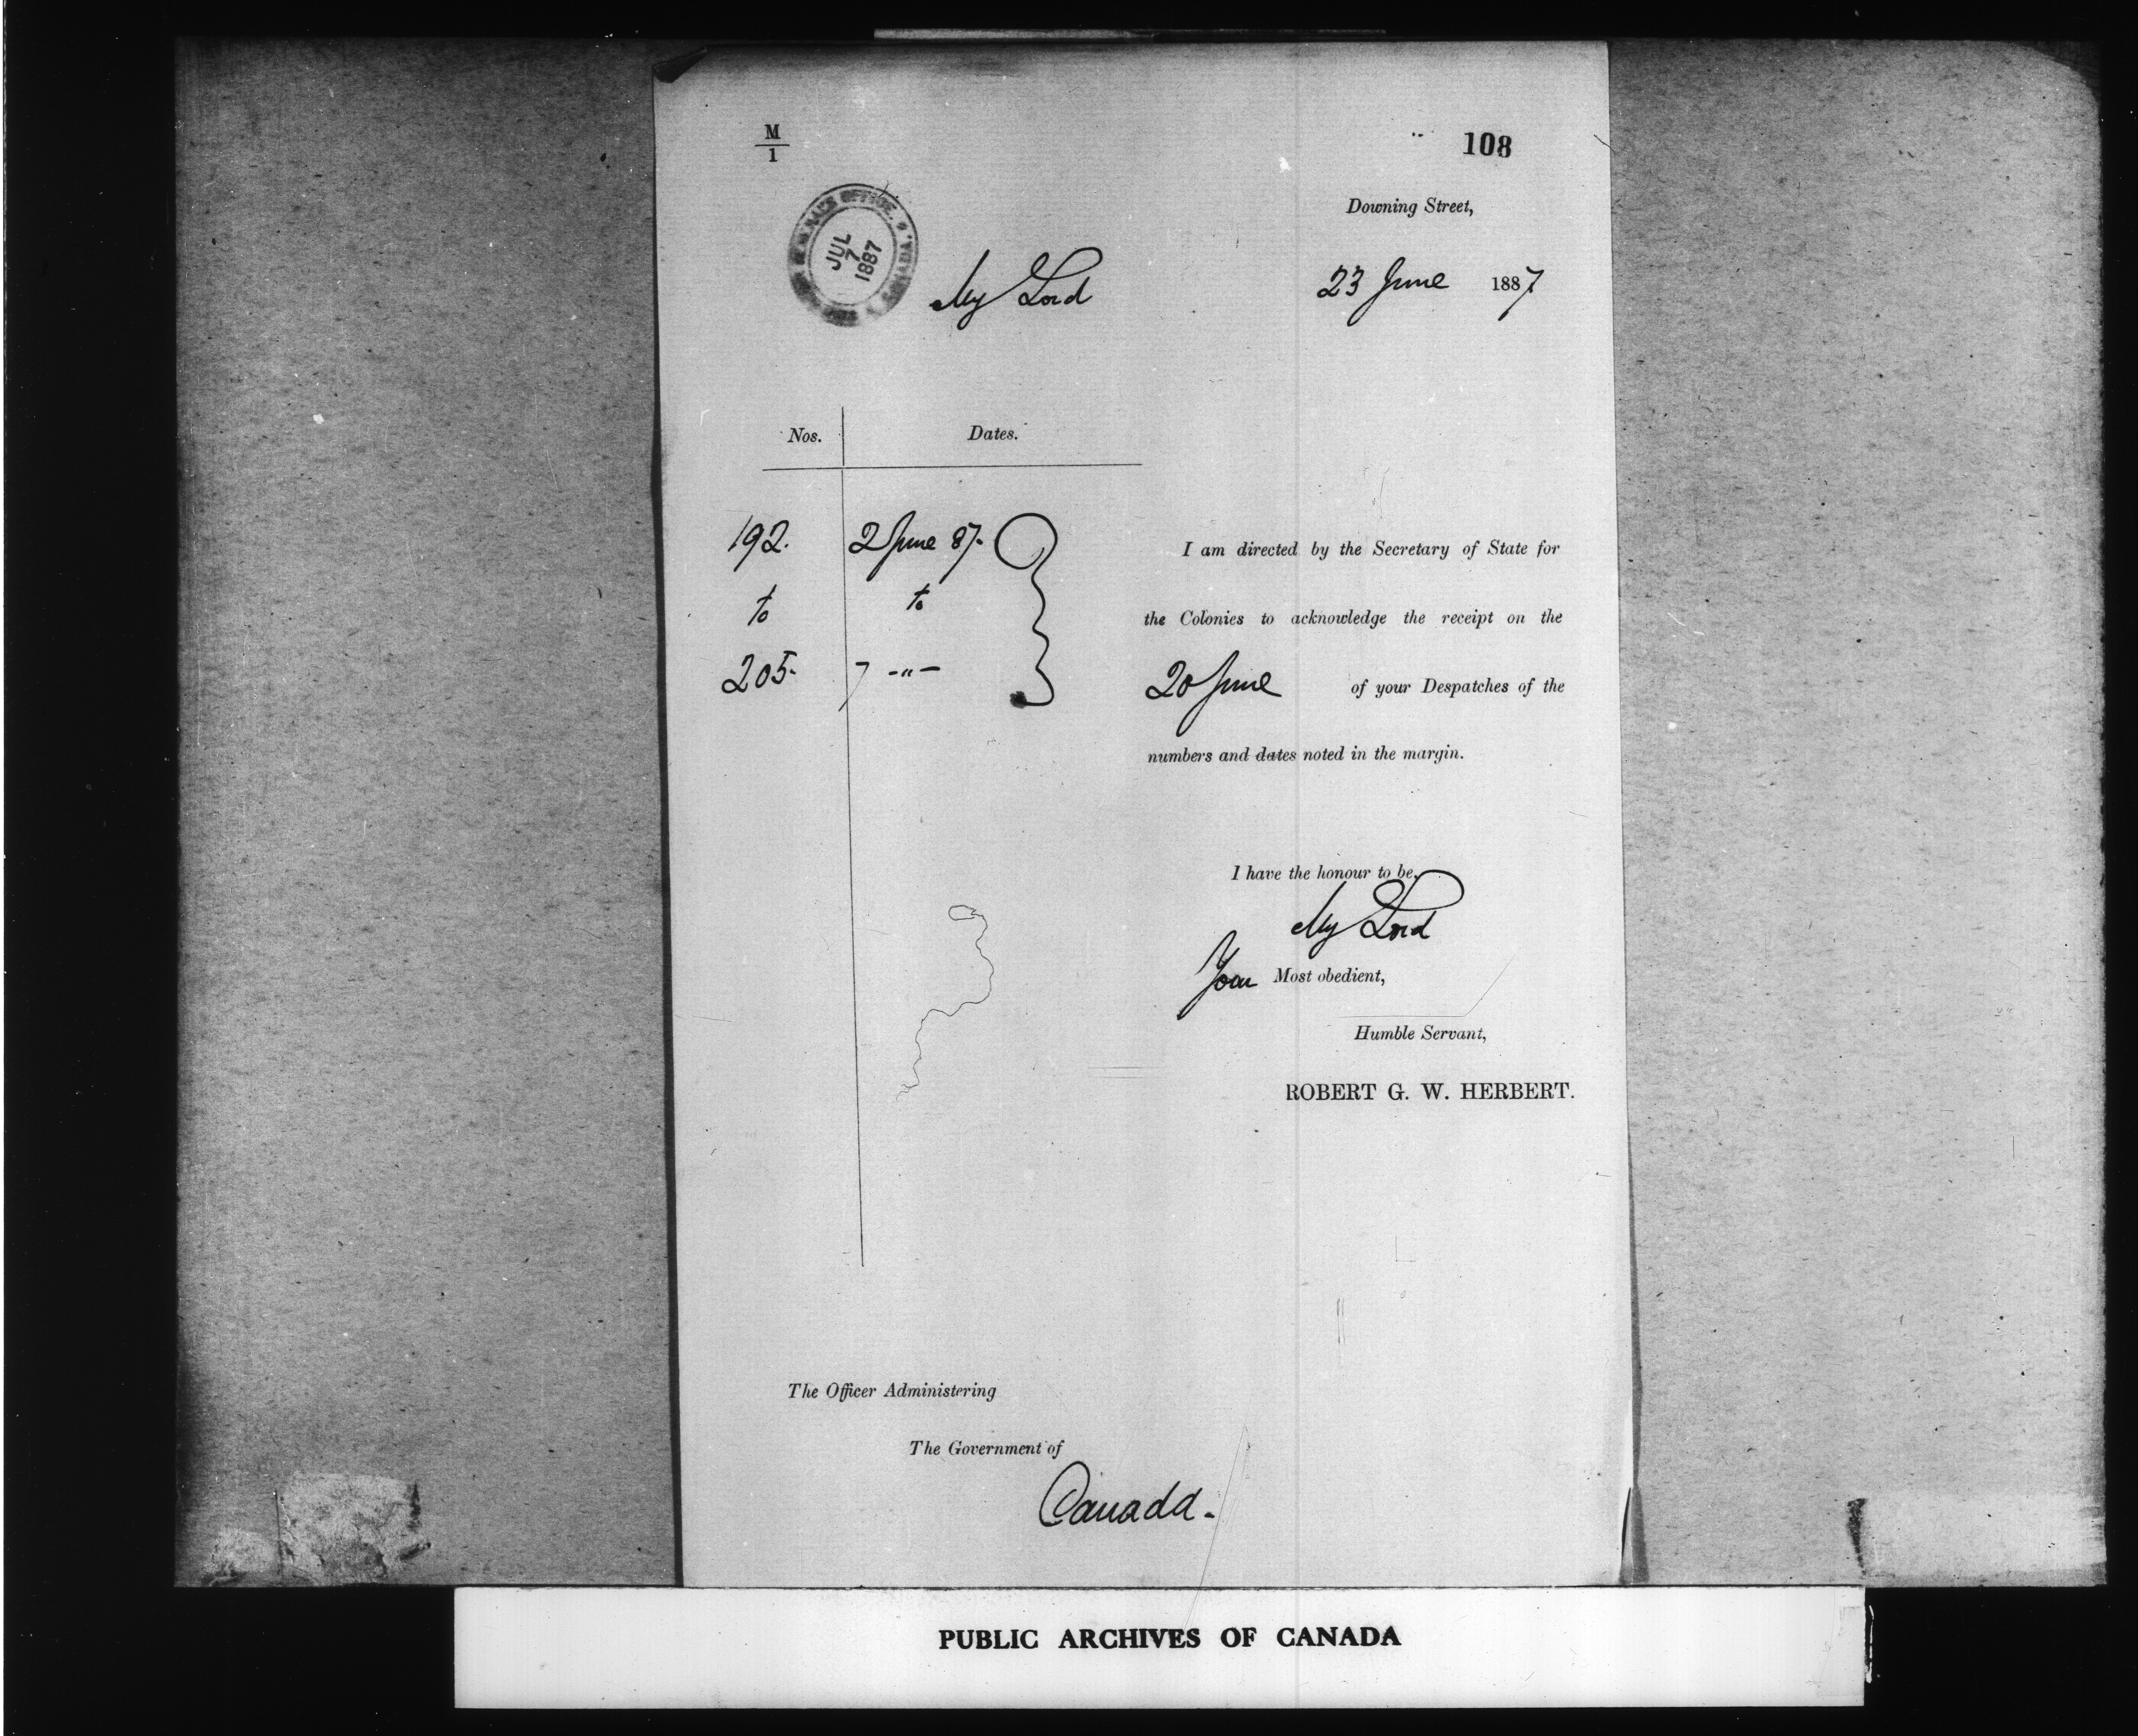 M
1
108
Downing Street,
GOVERNOR GENERAL'S OFFICE. CANADA.
JUL
7
1887
My Lord
23 June 1887
Nos. Dates.
192. 2 June 87.
to to
205. 7 -"-
I am directed by the Secretary of State for
the Colonies to acknowledge the receipt on the
20 June of your Despatches of the
numbers and dates noted in the margin.
I have the honour to be,
My Lord
Your Most obedient,
Humble Servant,
ROBERT G. W. HERBERT.
The Officer Administering
The Government of
Canada.
PUBLIC ARCHIVES OF CANADA